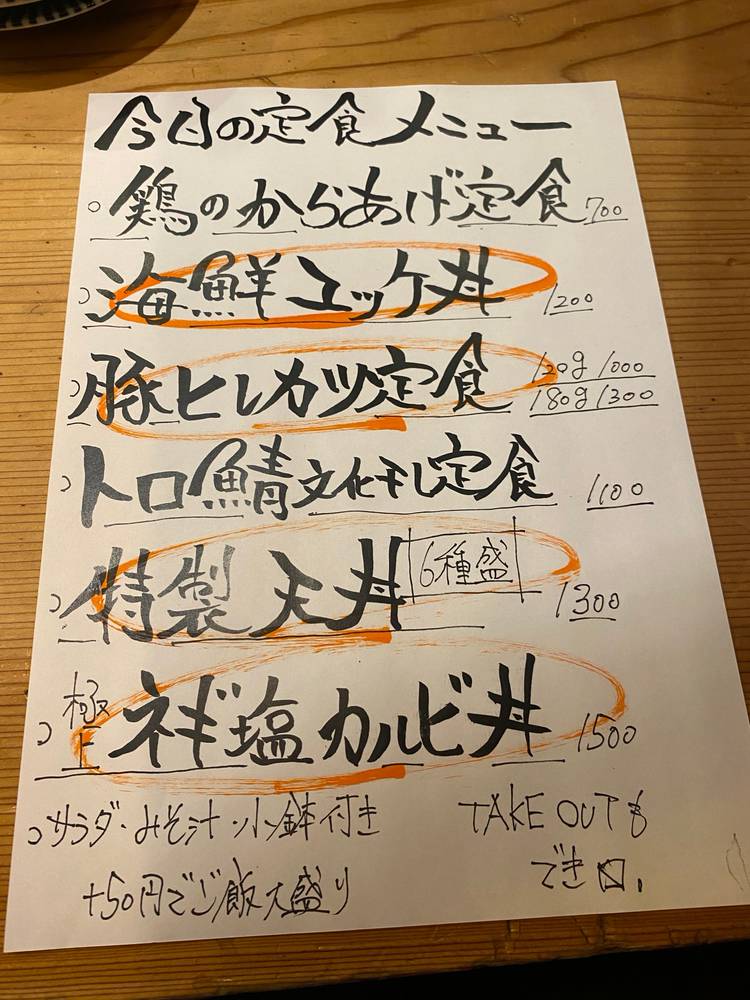 今日の定食メニュー
鶏のからあげ定食 700
海鮮ユッケ丼 1200
豚ヒレカツ定食 120g 1000
180g 1300
トロ鯖文化干し定食 1100
特製天丼 6種盛 1300
極上 ネギ塩カルビ丼 1500
サラダ・みそ汁・小鉢付き
+50円でご飯大盛り
TAKE OUTも
でき〼.